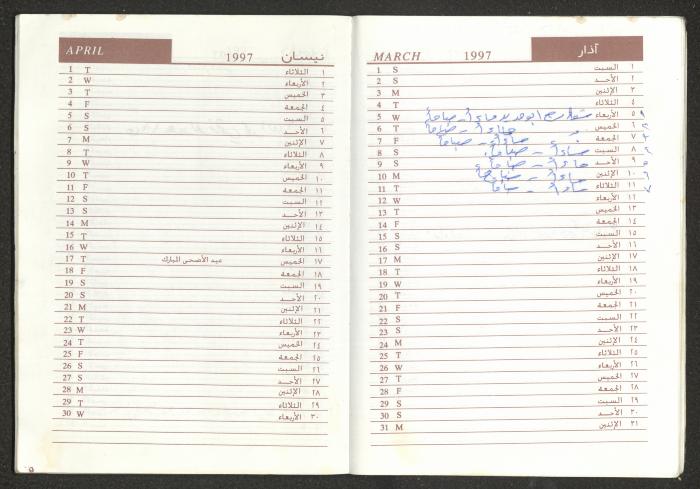 آذار
1997
MARCH
1 S السبت ١
2 S الأحـد ٢
3 M الإثنين ٣
4 T الثلاثاء ٤
5 W الأربعاء ٥
6 T الخميس ٦
7 F الجمعة ٧
8 S السبت ٨
9 S الأحـد ٩
10 M الإثنين ١٠
11 T الثلاثاء ١١
12 W الأربعاء ١٢
13 T الخميس ١٣
14 F الجمعة ١٤
15 S السبت ١٥
16 S الأحـد ١٦
17 M الإثنين ١٧
18 T الثلاثاء ١٨
19 W الأربعاء ١٩
20 T الخميس ٢٠
21 F الجمعة ٢١
22 S السبت ٢٢
23 S الأحـد ٢٣
24 M الإثنين ٢٤
25 T الثلاثاء ٢٥
26 W الأربعاء ٢٦
27 T الخميس ٢٧
28 F الجمعة ٢٨
29 S السبت ٢٩
30 S الأحـد ٣٠
31 M الإثنين ٣١
نيسان
1997
APRIL
1 T الثلاثاء ١
2 W الأربعاء ٢
3 T الخميس ٣
4 F الجمعة ٤
5 S السبت ٥
6 S الأحـد ٦
7 M الإثنين ٧
8 T الثلاثاء ٨
9 W الأربعاء ٩
10 T الخميس ١٠
11 F الجمعة ١١
12 S السبت ١٢
13 S الأحـد ١٣
14 M الإثنين ١٤
15 T الثلاثاء ١٥
16 W الأربعاء ١٦
17 T عيد الأضحى المبارك الخميس ١٧
18 F الجمعة ١٨
19 S السبت ١٩
20 S الأحـد ٢٠
21 M الإثنين ٢١
22 T الثلاثاء ٢٢
23 W الأربعاء ٢٣
24 T الخميس ٢٤
25 F الجمعة ٢٥
26 S السبت ٢٦
27 S الأحـد ٢٧
28 M الإثنين ٢٨
29 T الثلاثاء ٢٩
30 W الأربعاء ٣٠